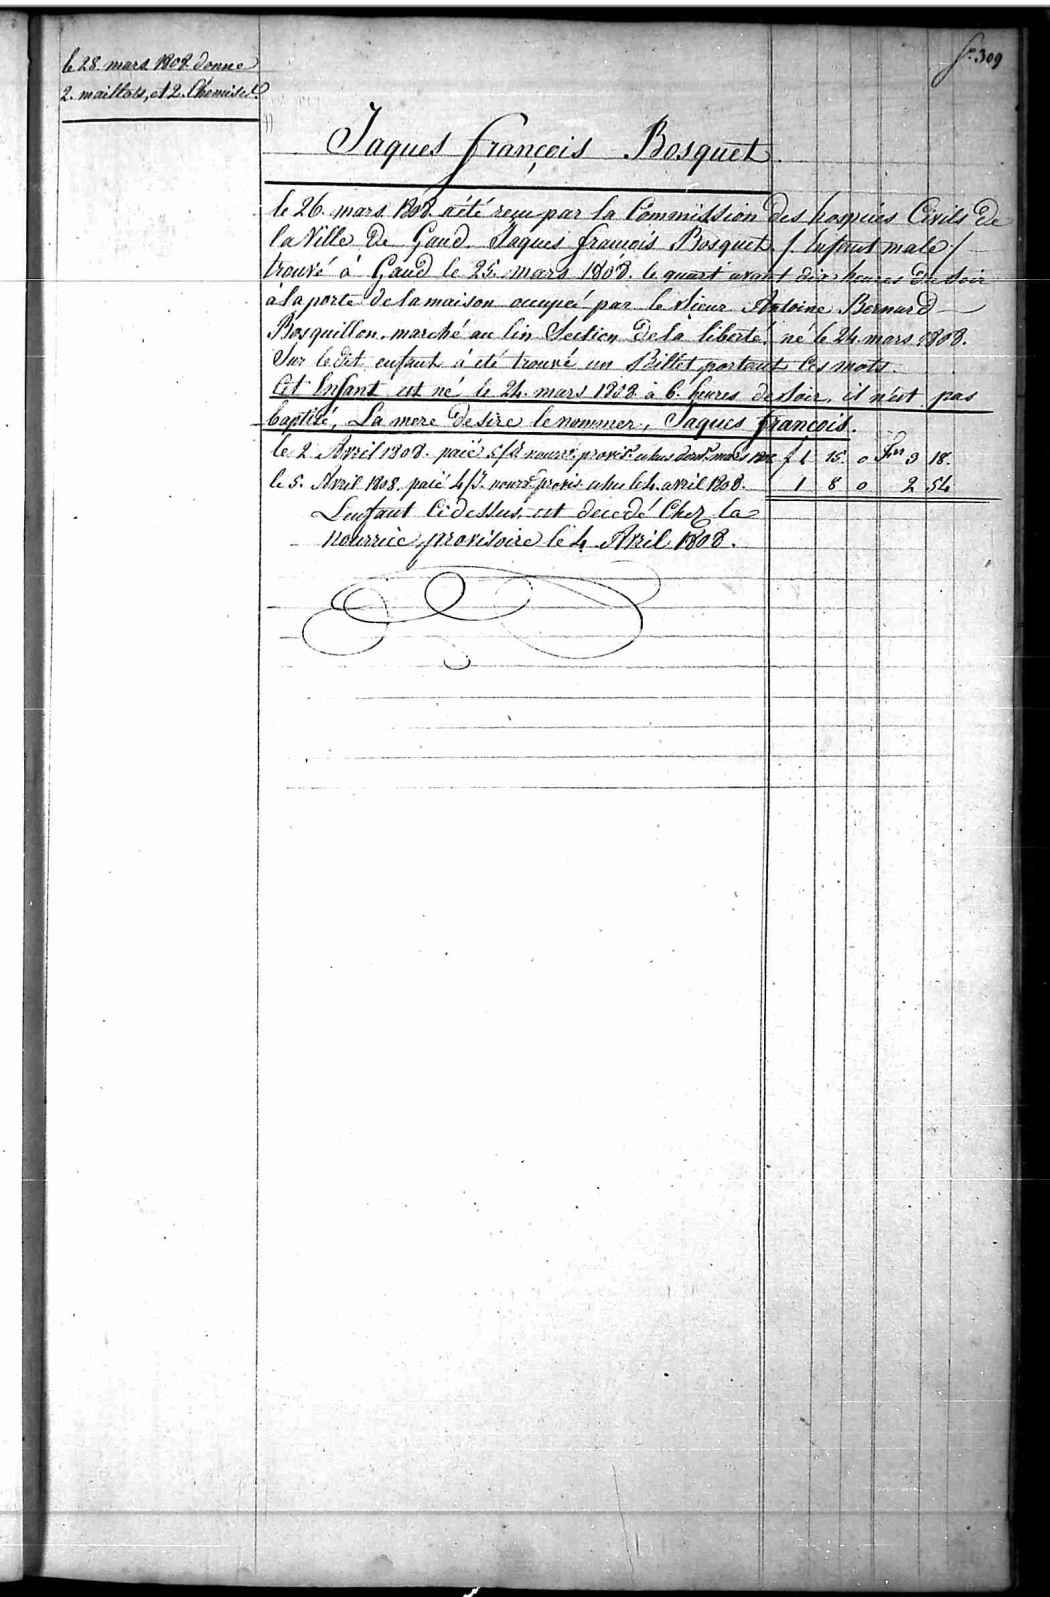 le 28. mars 1808. donné
2. maillots, et 2. Chemises.
fo. 309
Jaques françois Bosquet
le 26. mars 1808. a été reçu par la Commission des hospices Civils de
la Ville de Gand. Jaques françois Bosquet. / Enfant male /
trouvé à Gand le 25. mars 1808. le quart avant dix heures du soir
à la porte de la maison occupeé par le Sieur Antoine Bernard
Bosquillon, marché au lin Section de la liberté. né le 24. mars 1808.
Sur le dit enfant à eté trouvé un Billet portant les mots.
Cet Enfant est né le 24. mars 1808. à 6. heures de soir, il n'est pas
baptisé, La mere desire le nommer, Jaques françois.
le 2 Avril 1808. paié à nourr. provis. mars 1808 f 1 15. 0 frs 3 18.
le 5. Avril 1808. paié nourr. provis. le 4. avril 1808. 1 8 0 2 54
L'enfant Cidessus est decedé Chez la
nourrice provisoire le 4 Avril 1808.